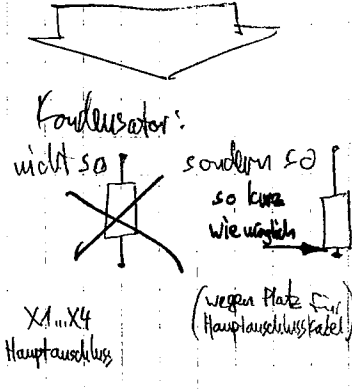 Kondensator:
nicht so
sondern so
so kurz
wie möglich
X1...X4
Hauptanschluss
(wegen Platz für
Hauptanschlusskabel)